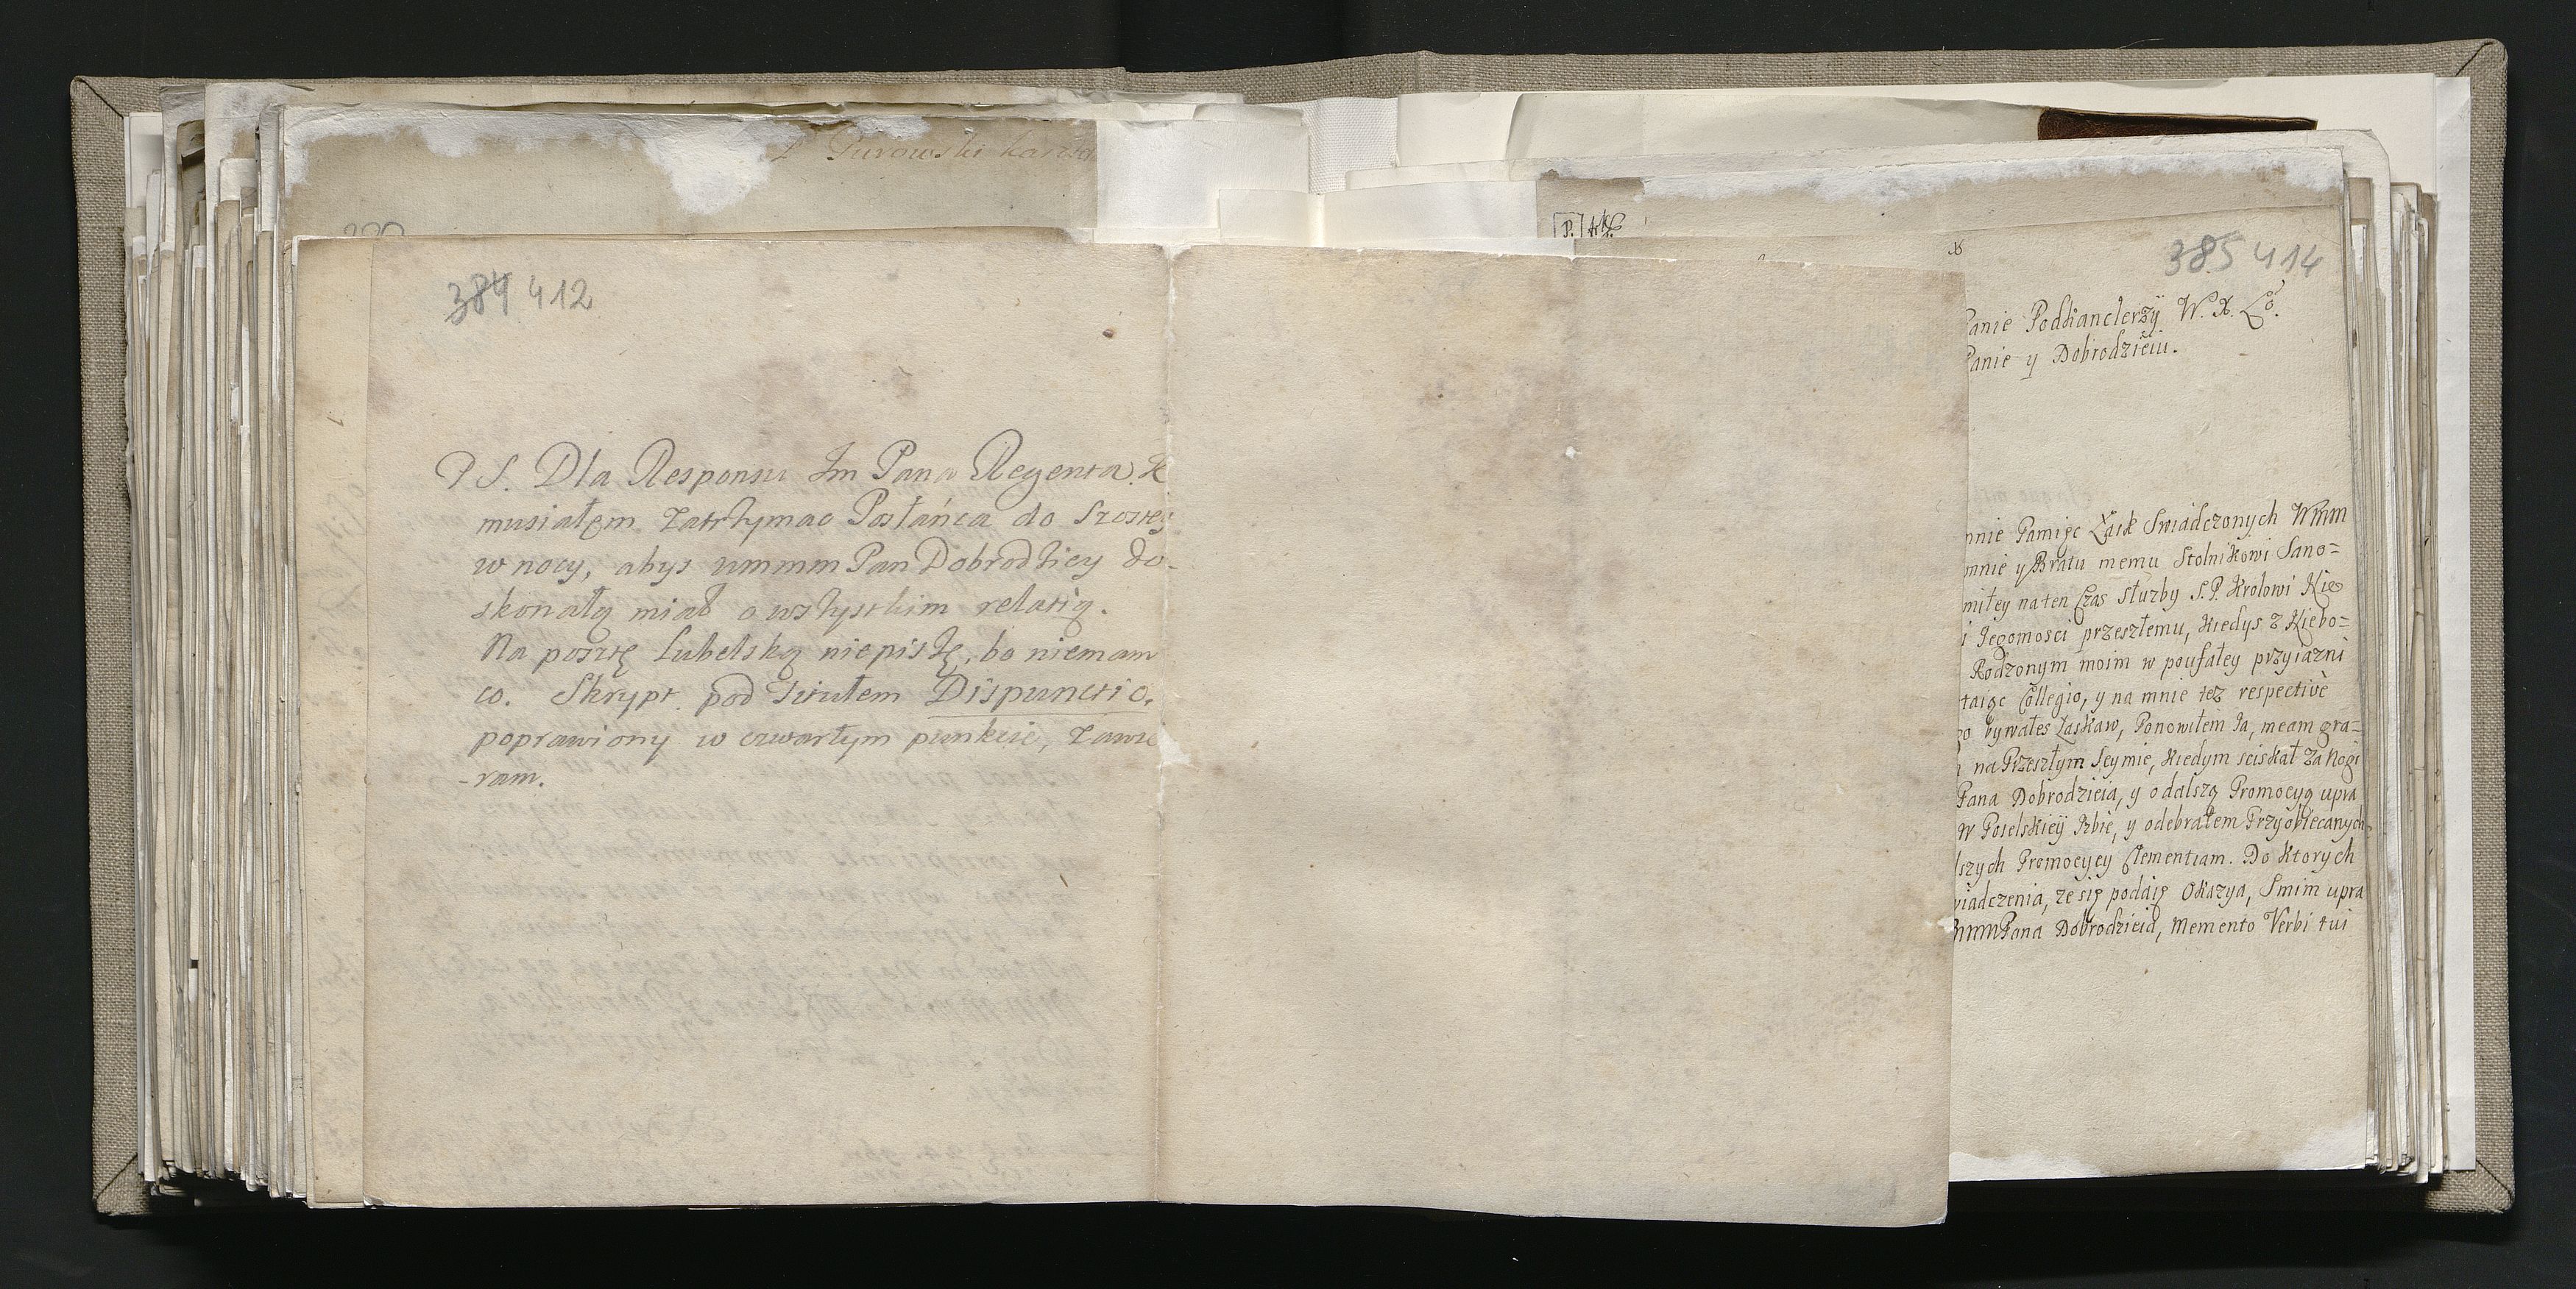 Purowski
384 412
P S. Dla Responsu Im Pana Regenta. K
musiałęm zatrzymac Posłańca do szostey
w nocy, abys ummm Pan Dobrodziey do-
skonałą miał o wszystkim relatią.
Na posztę Lubelską niepiszę, bo niemam
co. Skrypt pod titułem Dispunctio,
poprawiony w czwartym punkcie, zawie
-ram.
P.
385 414
Panie Podkanclerzÿ W. X. Lo.
Panie y Dobrodzieiu.
mnie Pamięc Łask Swiadczonych Wmm
mnie y Bratu memu Stolnikowi Sano=
miłey na ten Czas służby S. P. Krolowi
i Jegomosci przeszłemu, kiedys z Niebo=
Rodzonym moim w poufałey przyiazni
taiąc Collegio, y na mnie tez respective
bywałes Łaskaw, Ponowiłem Ja, meam gra=
na Przeszłym Seymie, kiedym sciskał za Nogi
Pana Dobrodzieia, y o dalszą Promocyą upra
w Poselskieÿ Izbie, y odebrałem Przyobiecanych
lszych Promocyey Clementiam. Do ktorych
wiadczenia, ze się podaię Okazya, Smim upra
mmmPana Dobrodzieia, Memento Verbi tui